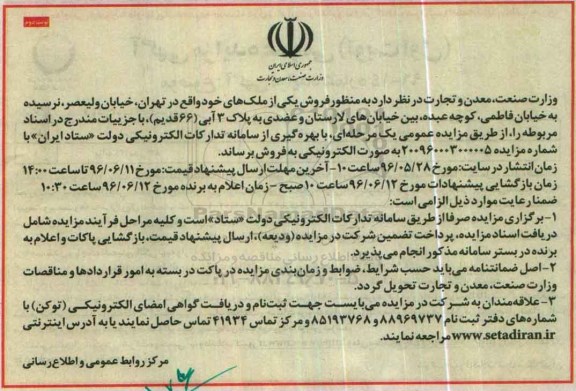 نوبت دوم
جمهوری اسلامی ایران
وزارت صنعت، معدن و تجارت
وزارت صنعت، معدن و تجارت در نظر دارد به منظور فروش یکی از ملک‌های خود واقع در تهران، خیابان ولیعصر، نرسیده
به خیابان فاطمی، کوچه عبده، بین خیابان‌های لارستان و عضدی به پلاک ۳ آبی (۶۶ قدیم)، با جزییات مندرج در اسناد
مربوطه را، از طریق مزایده عمومی یک مرحله‌ای، با بهره‌گیری از سامانه تدارکات الکترونیکی دولت «ستاد ایران» با
شماره مزایده ۲۰۰۹۶۰۰۰۳۰۰۰۰۰۵ به صورت الکترونیکی به فروش برساند.
زمان انتشار در سایت: مورخ ۹۶/۰۵/۲۸ ساعت ۱۰ - آخرین مهلت ارسال پیشنهاد قیمت: مورخ ۹۶/۰۶/۱۱ تا ساعت ۱۴:۰۰
زمان بازگشایی پیشنهادات مورخ ۹۶/۰۶/۱۲ ساعت ۱۰ صبح - زمان اعلام به برنده مورخ ۹۶/۰۶/۱۲ ساعت ۱۰:۳۰
ضمنا رعایت موارد ذیل الزامی است:
۱- برگزاری مزایده صرفا از طریق سامانه تدارکات الکترونیکی دولت «ستاد» است و کلیه مراحل فرآیند مزایده شامل
دریافت اسناد مزایده، پرداخت تضمین شرکت در مزایده (ودیعه)، ارسال پیشنهاد قیمت، بازگشایی پاکات و اعلام به
برنده در بستر سامانه مذکور انجام می‌پذیرد.
۲- اصل ضمانتنامه می‌باید حسب شرایط، ضوابط و زمان‌بندی مزایده در پاکت در بسته به امور قراردادها و مناقصات
وزارت صنعت، معدن و تجارت تحویل گردد.
۳- علاقه‌مندان به شرکت در مزایده می‌بایست جهت ثبت‌نام و دریافت گواهی امضای الکترونیکی (توکن) با
شماره‌های دفتر ثبت نام ۸۸۹۶۹۷۳۷ و ۸۵۱۹۳۷۶۸ و مرکز تماس ۴۱۹۳۴ تماس حاصل نمایند یا به آدرس اینترنتی
www.setadiran.ir مراجعه نمایند.
مرکز روابط عمومی و اطلاع رسانی